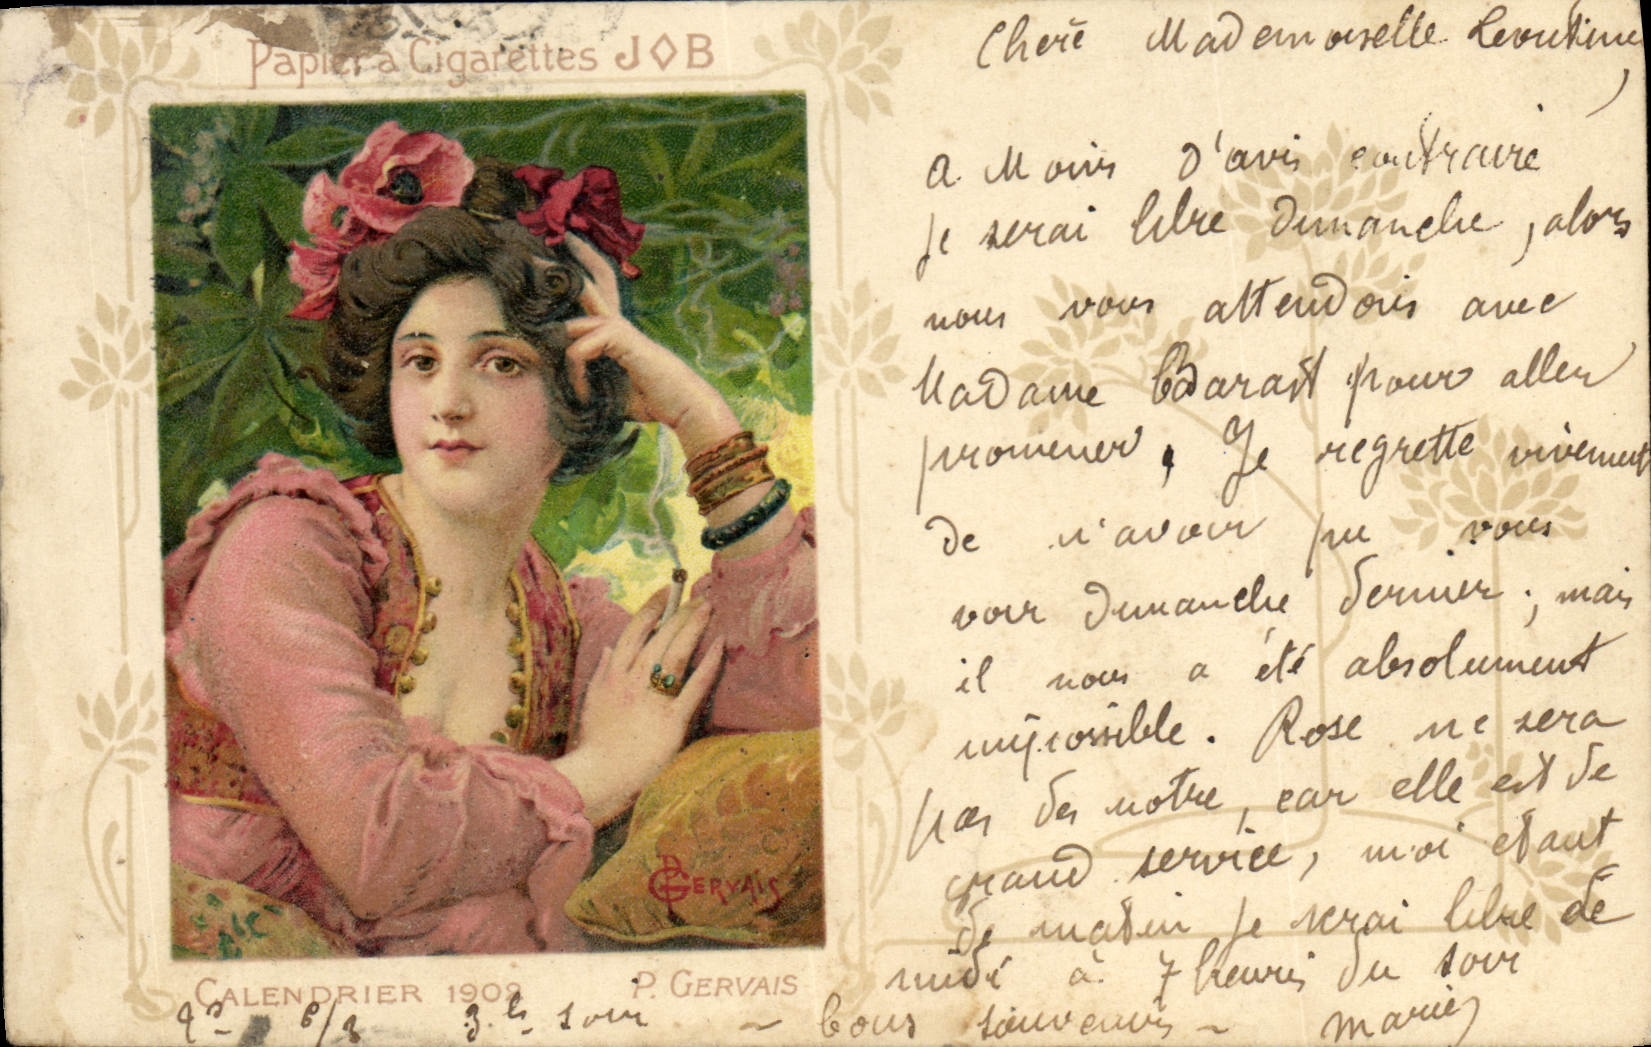 Papier à Cigarettes JOB
P. GERVAIS
CALENDRIER 1902
P. GERVAIS
Chere Mademoiselle Leontine,
a Moins d'avis contraire
je serai libre dimanche, alors
nous vous attendons avec
Madame pour aller
promener, Je regrette vivement
de n'avoir pu vous
voir dimanche dernier; mais
il nous a été absolument
impossible. Rose ne sera
pas des notre, car elle est de
grand service, moi etant
de matin je serai libre de
midi à 7 heures du soir
soir ~ bons souvenirs ~ Marie